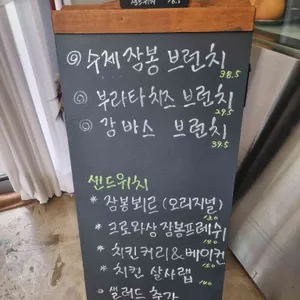 ◎ 수제 잠봉 브런치
38.5
◎ 부라타치즈 브런치
29.5
◎ 감바스 브런치
39.5
샌드위치
* 잠봉뵈르 (오리지널)
* 크로와상 잠봉프레쉬
* 치킨커리&베이컨
* 치킨 살사랩
* 샐러드 추가